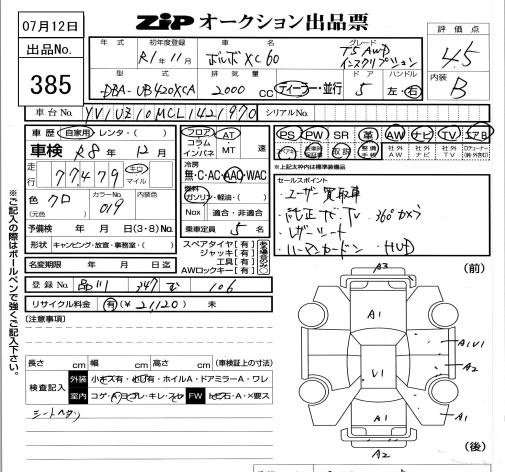 07月12日
ZIP オークション出品票
出品No.
385
年式
初年度登録
車名
グレード
R1年11月
ボルボ XC60
T5 AWD
インスクリプション
評価点
4.5
内装
B
型式
排気量
ドア
ハンドル
DBA-UB420XCA
2000 cc
ディーラー・並行
5
左・右
車台No.
YV1UZ10MCL1421970
シリアルNo.
車歴 自家用・レンタ・( )
車検 R8年12月
走行 77479 キロ マイル
色 クロ
(元色)
カラーNo.
019
内装色
予備検 年 月 日(3・8)No.
形状 キャンピング・放宣・事務室・( )
名変期限 年 月 日迄
フロア
コラム
インパネ
AT
MT
速
冷房
無・C・AC・AAC・WAC
燃料
ガソリン・軽油・( )
Nox 適合・非適合
乗車定員 5 名
スペアタイヤ[有]
ジャッキ[有]
工具[有]
AWロックキー[有]
PS PW SR 革 AW ナビ TV エアB
取説
整備手帳
社外AW
社外ナビ
社外TV
※上記太枠内は標準装備品
セールスポイント
・ユーザー買取車
・純正ナビ TV 360°カメラ
・レザーシート
・ハーマンカードン HUD
登録No. 品川 347 せ 106
リサイクル料金 有(¥21,120) 未
[注意事項]
長さ cm 幅 cm 高さ cm (車検証上の寸法)
検査記入
外装 小キズ有・凹有・ホイルA・ドアミラーA・ワレ
室内 コゲ・A・ヨゴレ・キレ・スレ FW トビ石・A・X要ス
シートヘタリ
(前)
A3
A1
A1U1
A2
V1
A1
A2
(後)
※ご記入の際はボールペンで強くご記入下さい。